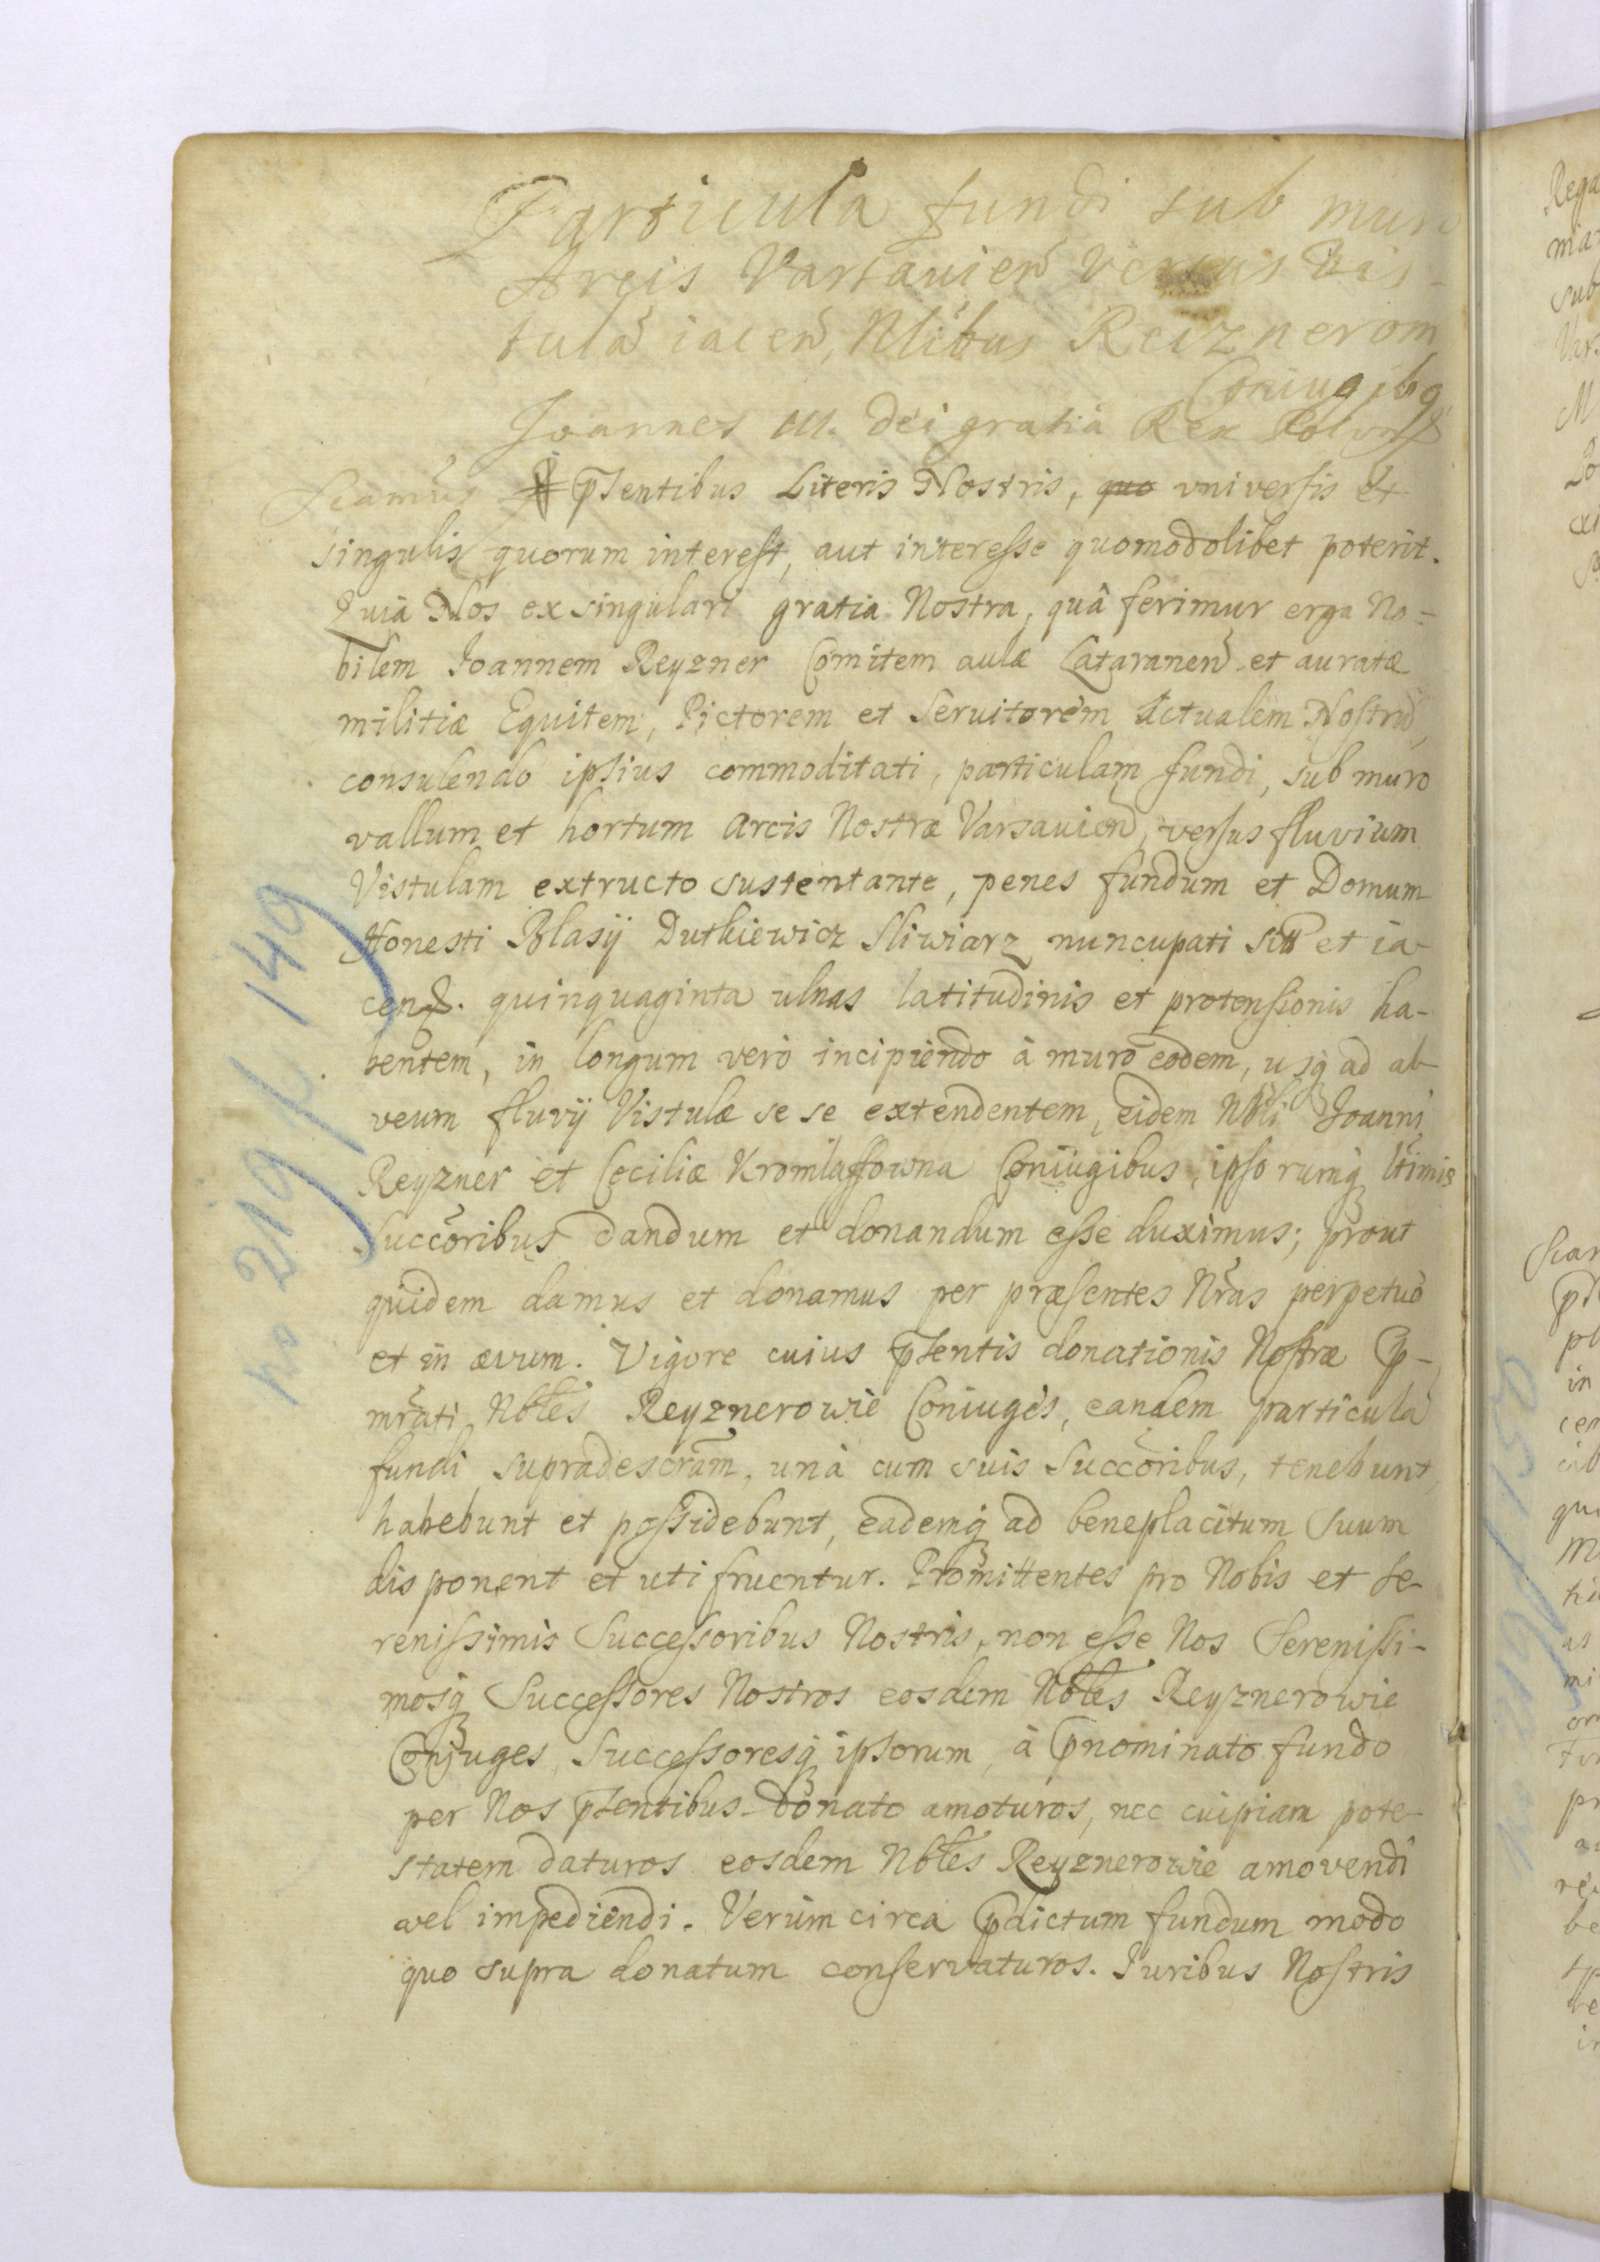 Particula fundi sub muro
Arcis Varsavień versus Vis-
tulā iaceń, Nlibus Reiznerom
Coniugibq
Joannes III. Dei gratia Rex Polon
Seamus p̄sentibus Literis Nostris, quo universis et
singulis quorum interest, aut interesse quomodolibet poterit.
Quia Nos ex singulari gratia Nostra, quâ ferimur erga No-
bilem Joannem Reyzner Comitem aulæ Lataraneń et auratæ
militiæ Equitem, Pictorem et Servitorem Actualem Nostrū,
consulendo ipsius commoditati, particulam fundi, sub muro
vallum et hortum Arcis Nostræ Varsavień, versus fluvium
Vistulam extructo sustentante, penes fundum et Domum
Honesti Blasÿ Dutkiewicz Sliwiarz nuncupati sitt et ia-
cen. quinquaginta ulnas latitudinis et protensionis ha-
bentem, in longum verò incipiendo à muro eodem, usq́ ad al-
veum fluvÿ Vistulæ se se extendentem, eidem Nbli Joanni
Reyzner et Ceciliæ Kromlaffowna Coniugibus, ipsorumq́ ltimis
Succoribus dandum et donandum esse duximus; prout
quidem damus et donamus per præsentes Nras perpetuò
et in ævum. Vigore cuius p̄sentis donationis Nostræ p̄-
mrati Nbles Reyznerowie Coniuges, eandem particulā
fundi supradescram, unà cum suis Succoribus, tenebunt,
habebunt et possidebunt, eademq́ ad beneplacitum suum
disponent et uti fruentur. Promittentes pro Nobis et Se-
renissimis Successoribus Nostris, non esse Nos Serenissi-
mosq́ Successores Nostros eosdem Nbles Reyznerowie
Conjuges, Successoresq́ ipsorum, à p̄nominato fundo
per Nos p̄sentibus donato amoturos, nec cuipiam pote-
statem daturos eosdem Nbles Reyznerowie amovendi
vel impediendi. Verùm circa p̄dictum fundum modo
quo supra donatum conservaturos. Iuribus Nostris
no 219 k 149